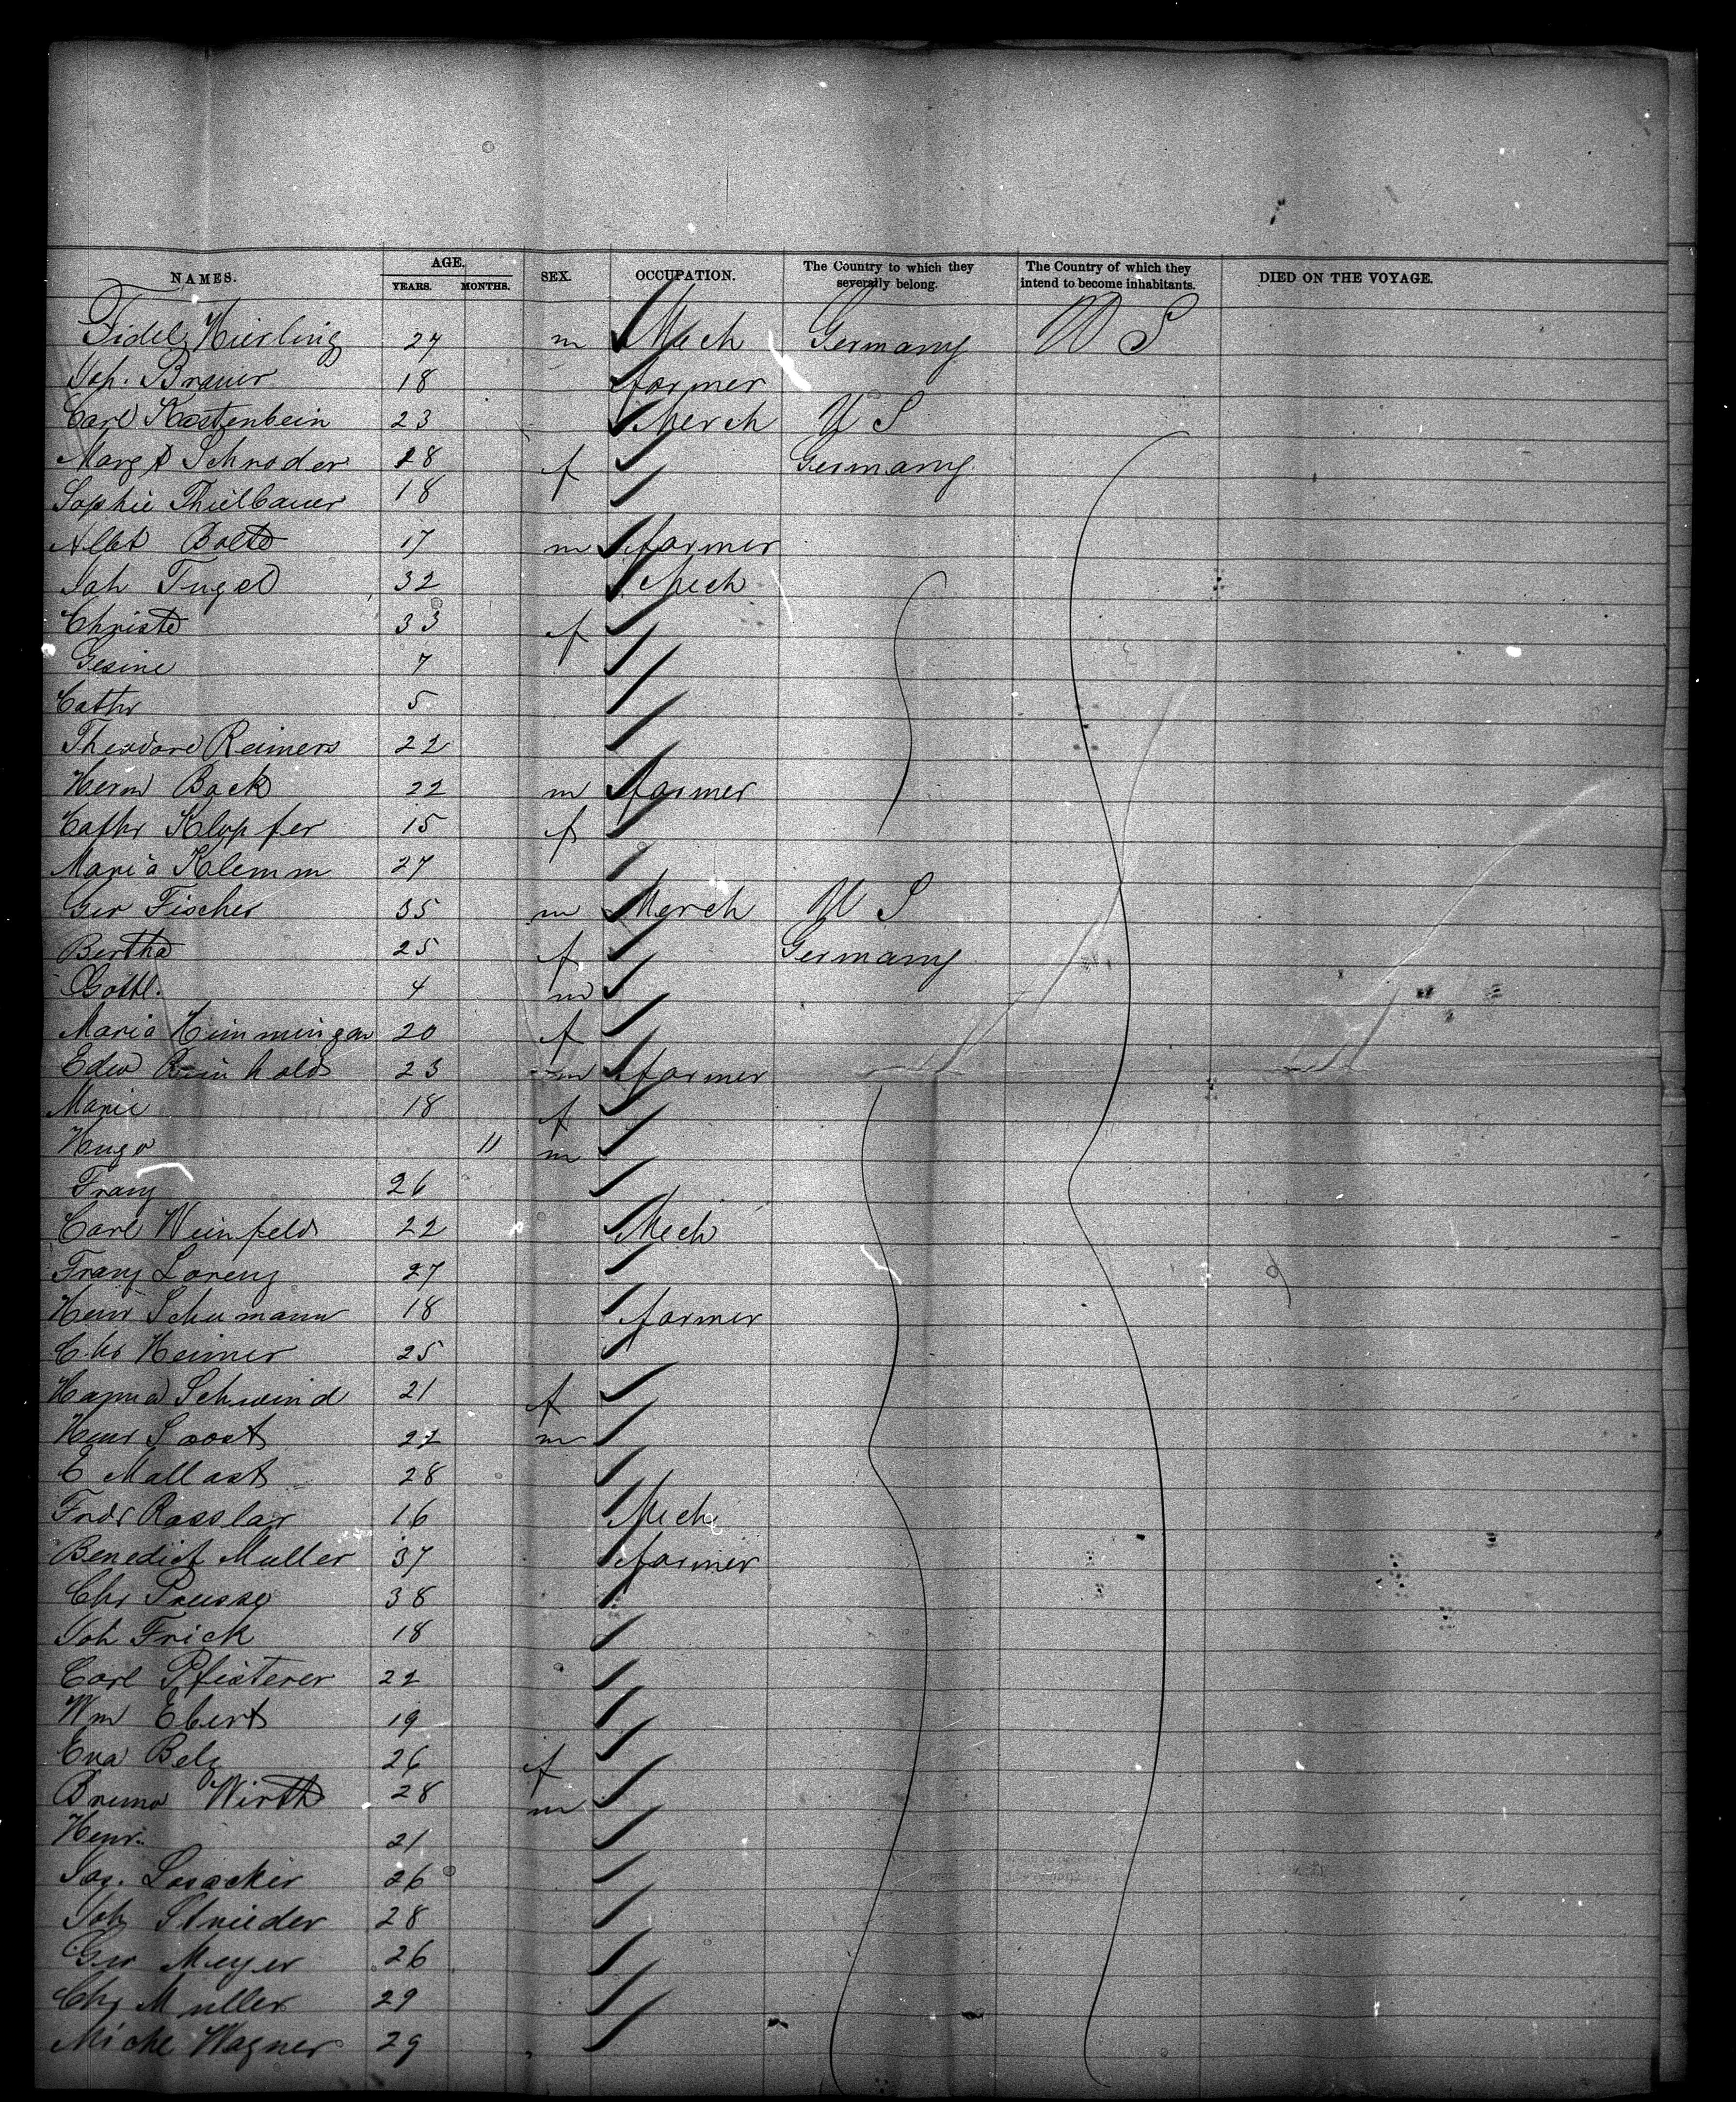 NAMES. AGE. SEX. OCCUPATION. The Country to which they severally belong. The Country of which they intend to become inhabitants. DIED ON THE VOYAGE.
YEARS. MONTHS.
Fidel Hierling 24 m Mech Germany U S
Joh. Brauer 18 farmer
Carl Kostenbein 23 Merch U S
Margt Schroder 28 f Germany
Sophie Thielbauer 18
Albt Bolte 17 m farmer
Joh Tugel 32 Mech
Christe 33 f
Gesine 7
Cathr 5
Theodore Reimers 22
Herm Back 22 m farmer
Cathr Klopfer 15 f
Maria Klemm 27
Geo Fischer 35 m Merch U S
Bertha 25 f Germany
Gottl. 4 m
Maria 20 f
Edw Reinholds 23 m farmer
Marie 18 f
Hugo 11 m
Franz 26
Carl Weinfeld 22 Mech
Franz Lorenz 27
Henr Schumann 18 farmer
Chr Heimer 25
Hanna Schwind 21 f
Henr Soost 22 m
E Mallast 28
Fridr Rasslar 16 Mech
Benedict Muller 37 farmer
Chr Preusse 38
Joh Frick 18
Carl Pfisterer 22
Wm Ebert 19
Eva Belz 26 f
Bruno Wirth 28 m
Henr. 21
Jac. Losacker 26
Joh Strieder 28
Geo Meyer 26
Chr Muller 29
Miche Wagner 29